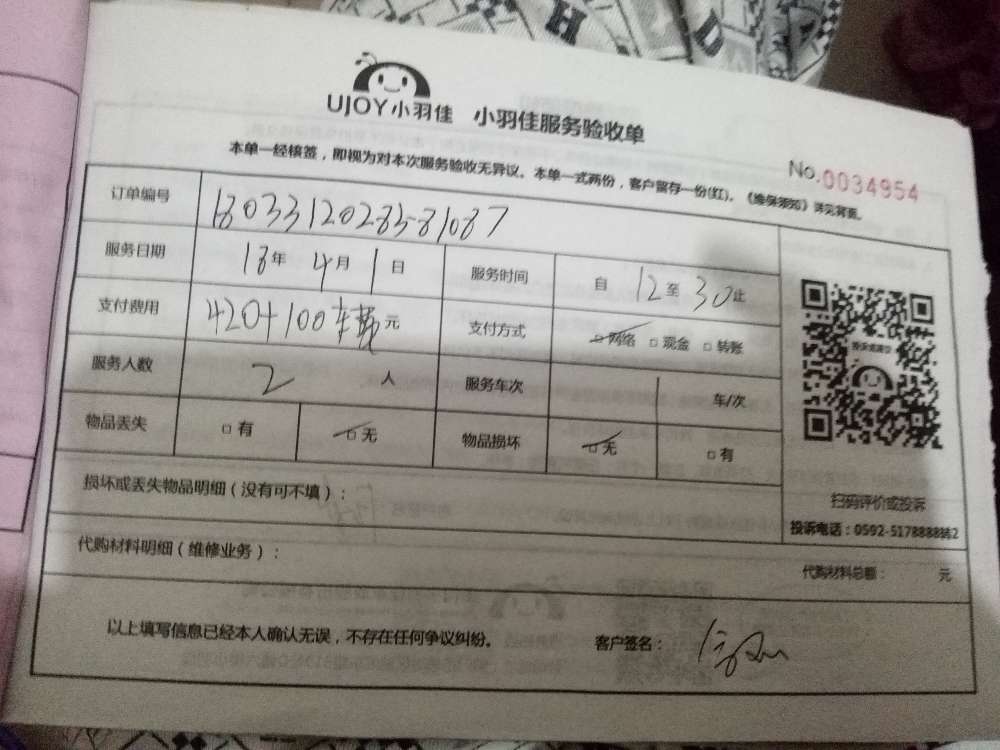 UJOY小羽佳 小羽佳服务验收单
本单一经核签，即视为对本次服务验收无异议。本单一式两份，客户留存一份(红)。《维保须知》详见背面。
No.0034954
订单编号 18033120283-81087
服务日期 18年 4月 1日 服务时间 自 12 至 30 止
支付费用 420+100车费元 支付方式 □网络 □现金 □转账
服务人数 2 人 服务车次 车/次
物品丢失 □有 □无 物品损坏 □无 □有
损坏或丢失物品明细（没有可不填）：
扫码评价或投诉
投诉电话：0592-5178888转2
代购材料明细（维修业务）： 代购材料总额： 元
以上填写信息已经本人确认无误，不存在任何争议纠纷。 客户签名：